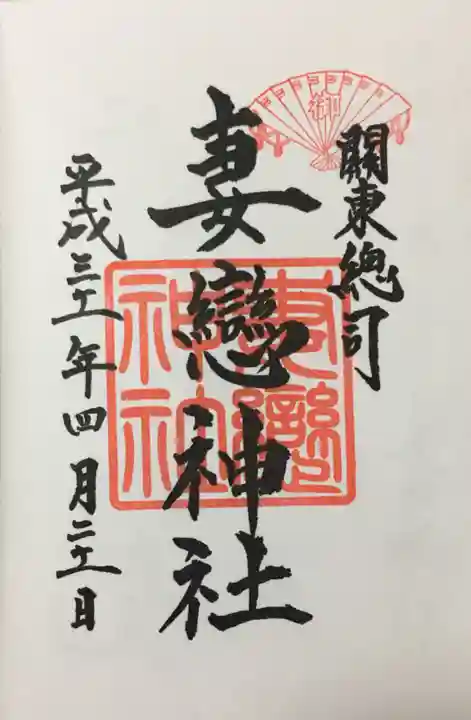 御
關東總司
妻戀神社
平成三十一年四月二十一日
妻戀
神社